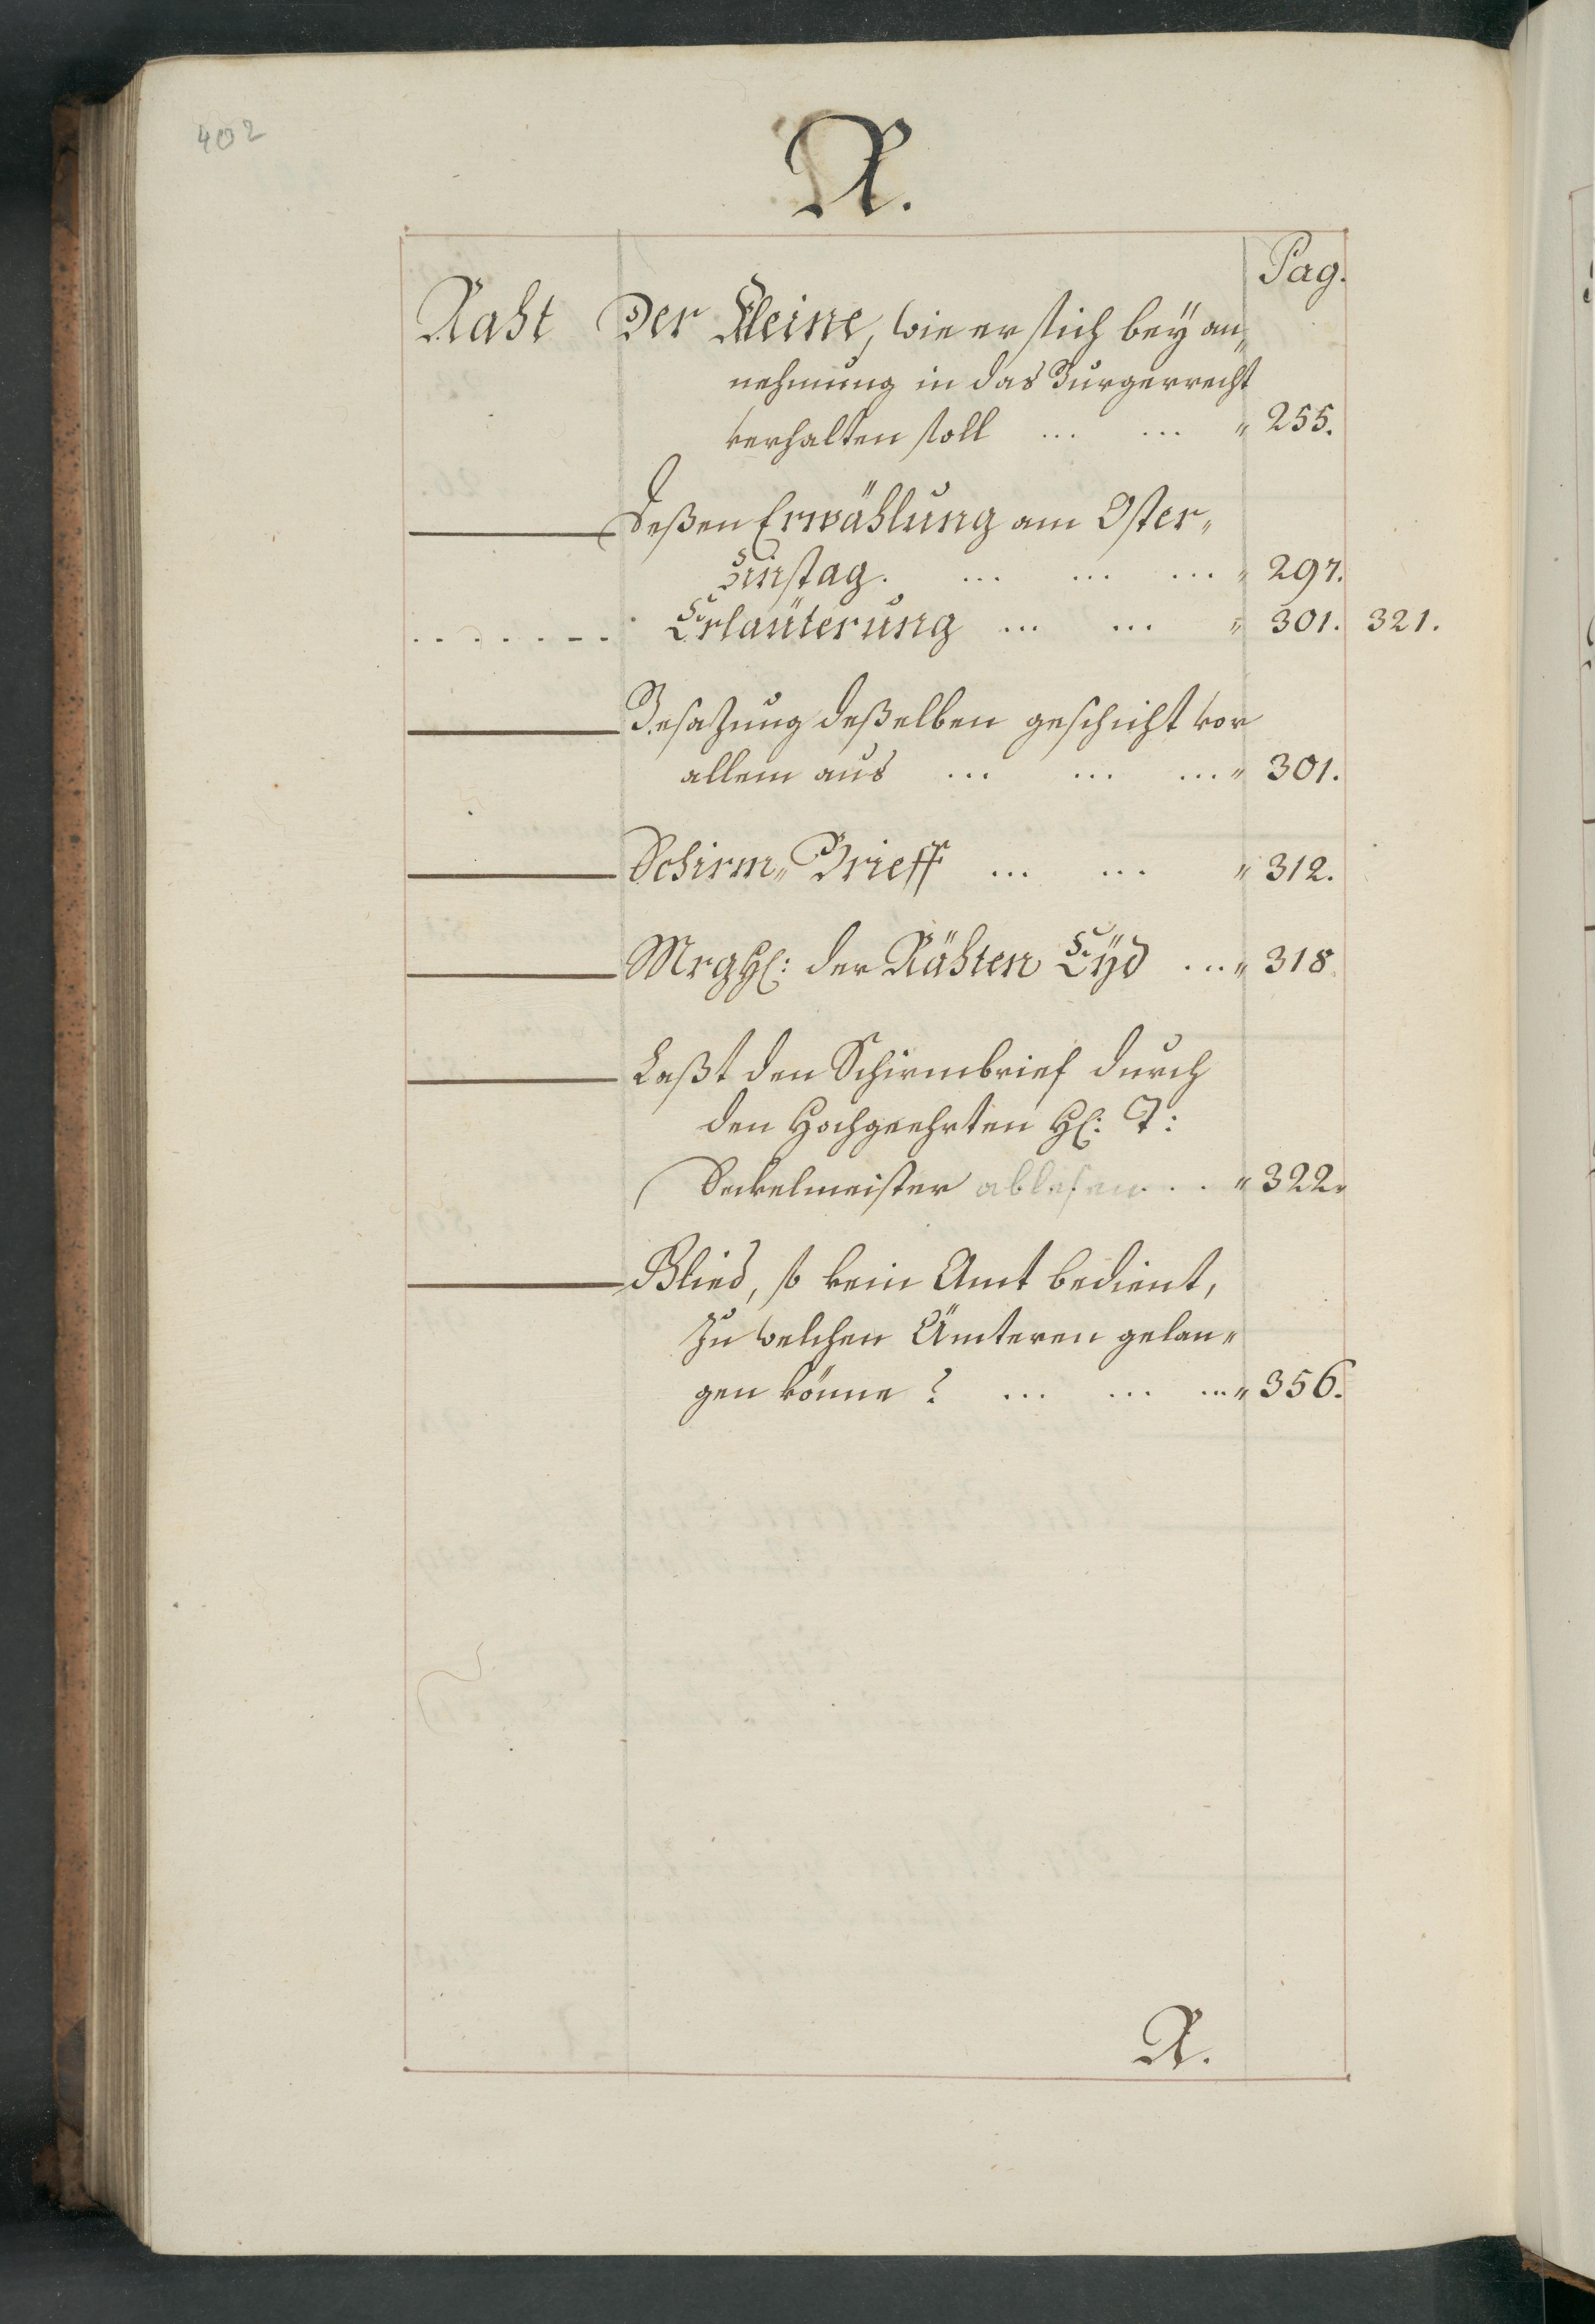 402
R.
Pag.
Raht Der Kleine, wie er sich bey an„
nehmung in das Burgerrecht
verhalten soll ... ... " 255.
——— Deßen Erwählung am Oster„
Zinstag. ... ... ... " 297.
. . . . . . . Erlaüterung ... ... " 301. 321.
——— Besazung deßelben geschicht vor
allem aus ... ... ... " 301.
——— Schirm„Brieff ... ... " 312.
——— MrgHh: der Rähten Eÿd ... " 318.
——— Laßt den Schirmbrief durch
den Hochgeehrten Hh: T:
Sekelmeister ablesen . . . " 322.
——— Glied, so kein Amt bedient,
zu welchen Ämteren gelan„
gen könne? ... ... ... " 356.
R.